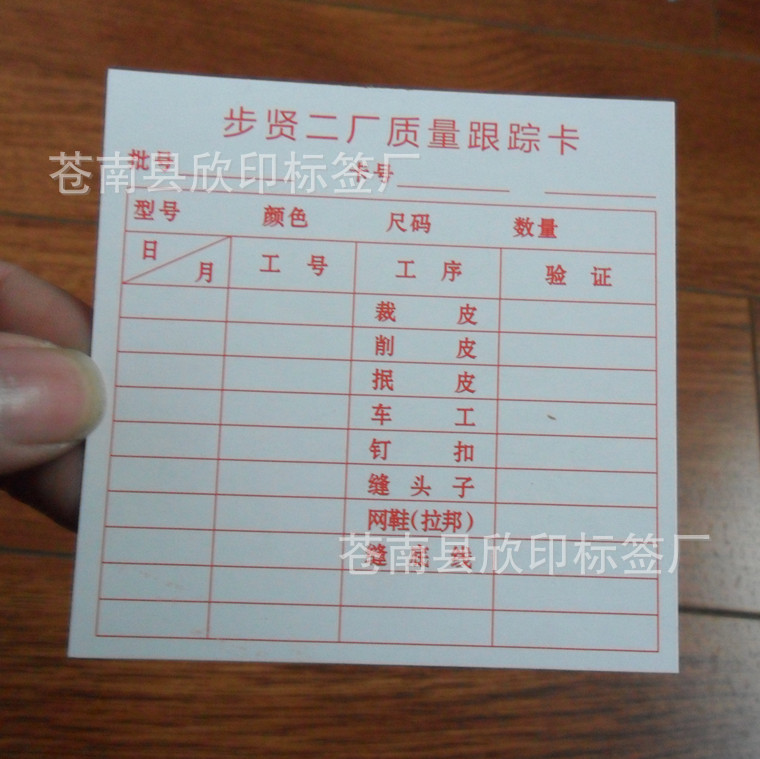 步贤二厂质量跟踪卡
批号 卡号
苍南县欣印标签厂
型号 颜色 尺码 数量
日 月 工号 工序 验证
裁皮
削皮
抿皮
车工
钉扣
缝头子
网鞋(拉邦)
缝底线
苍南县欣印标签厂